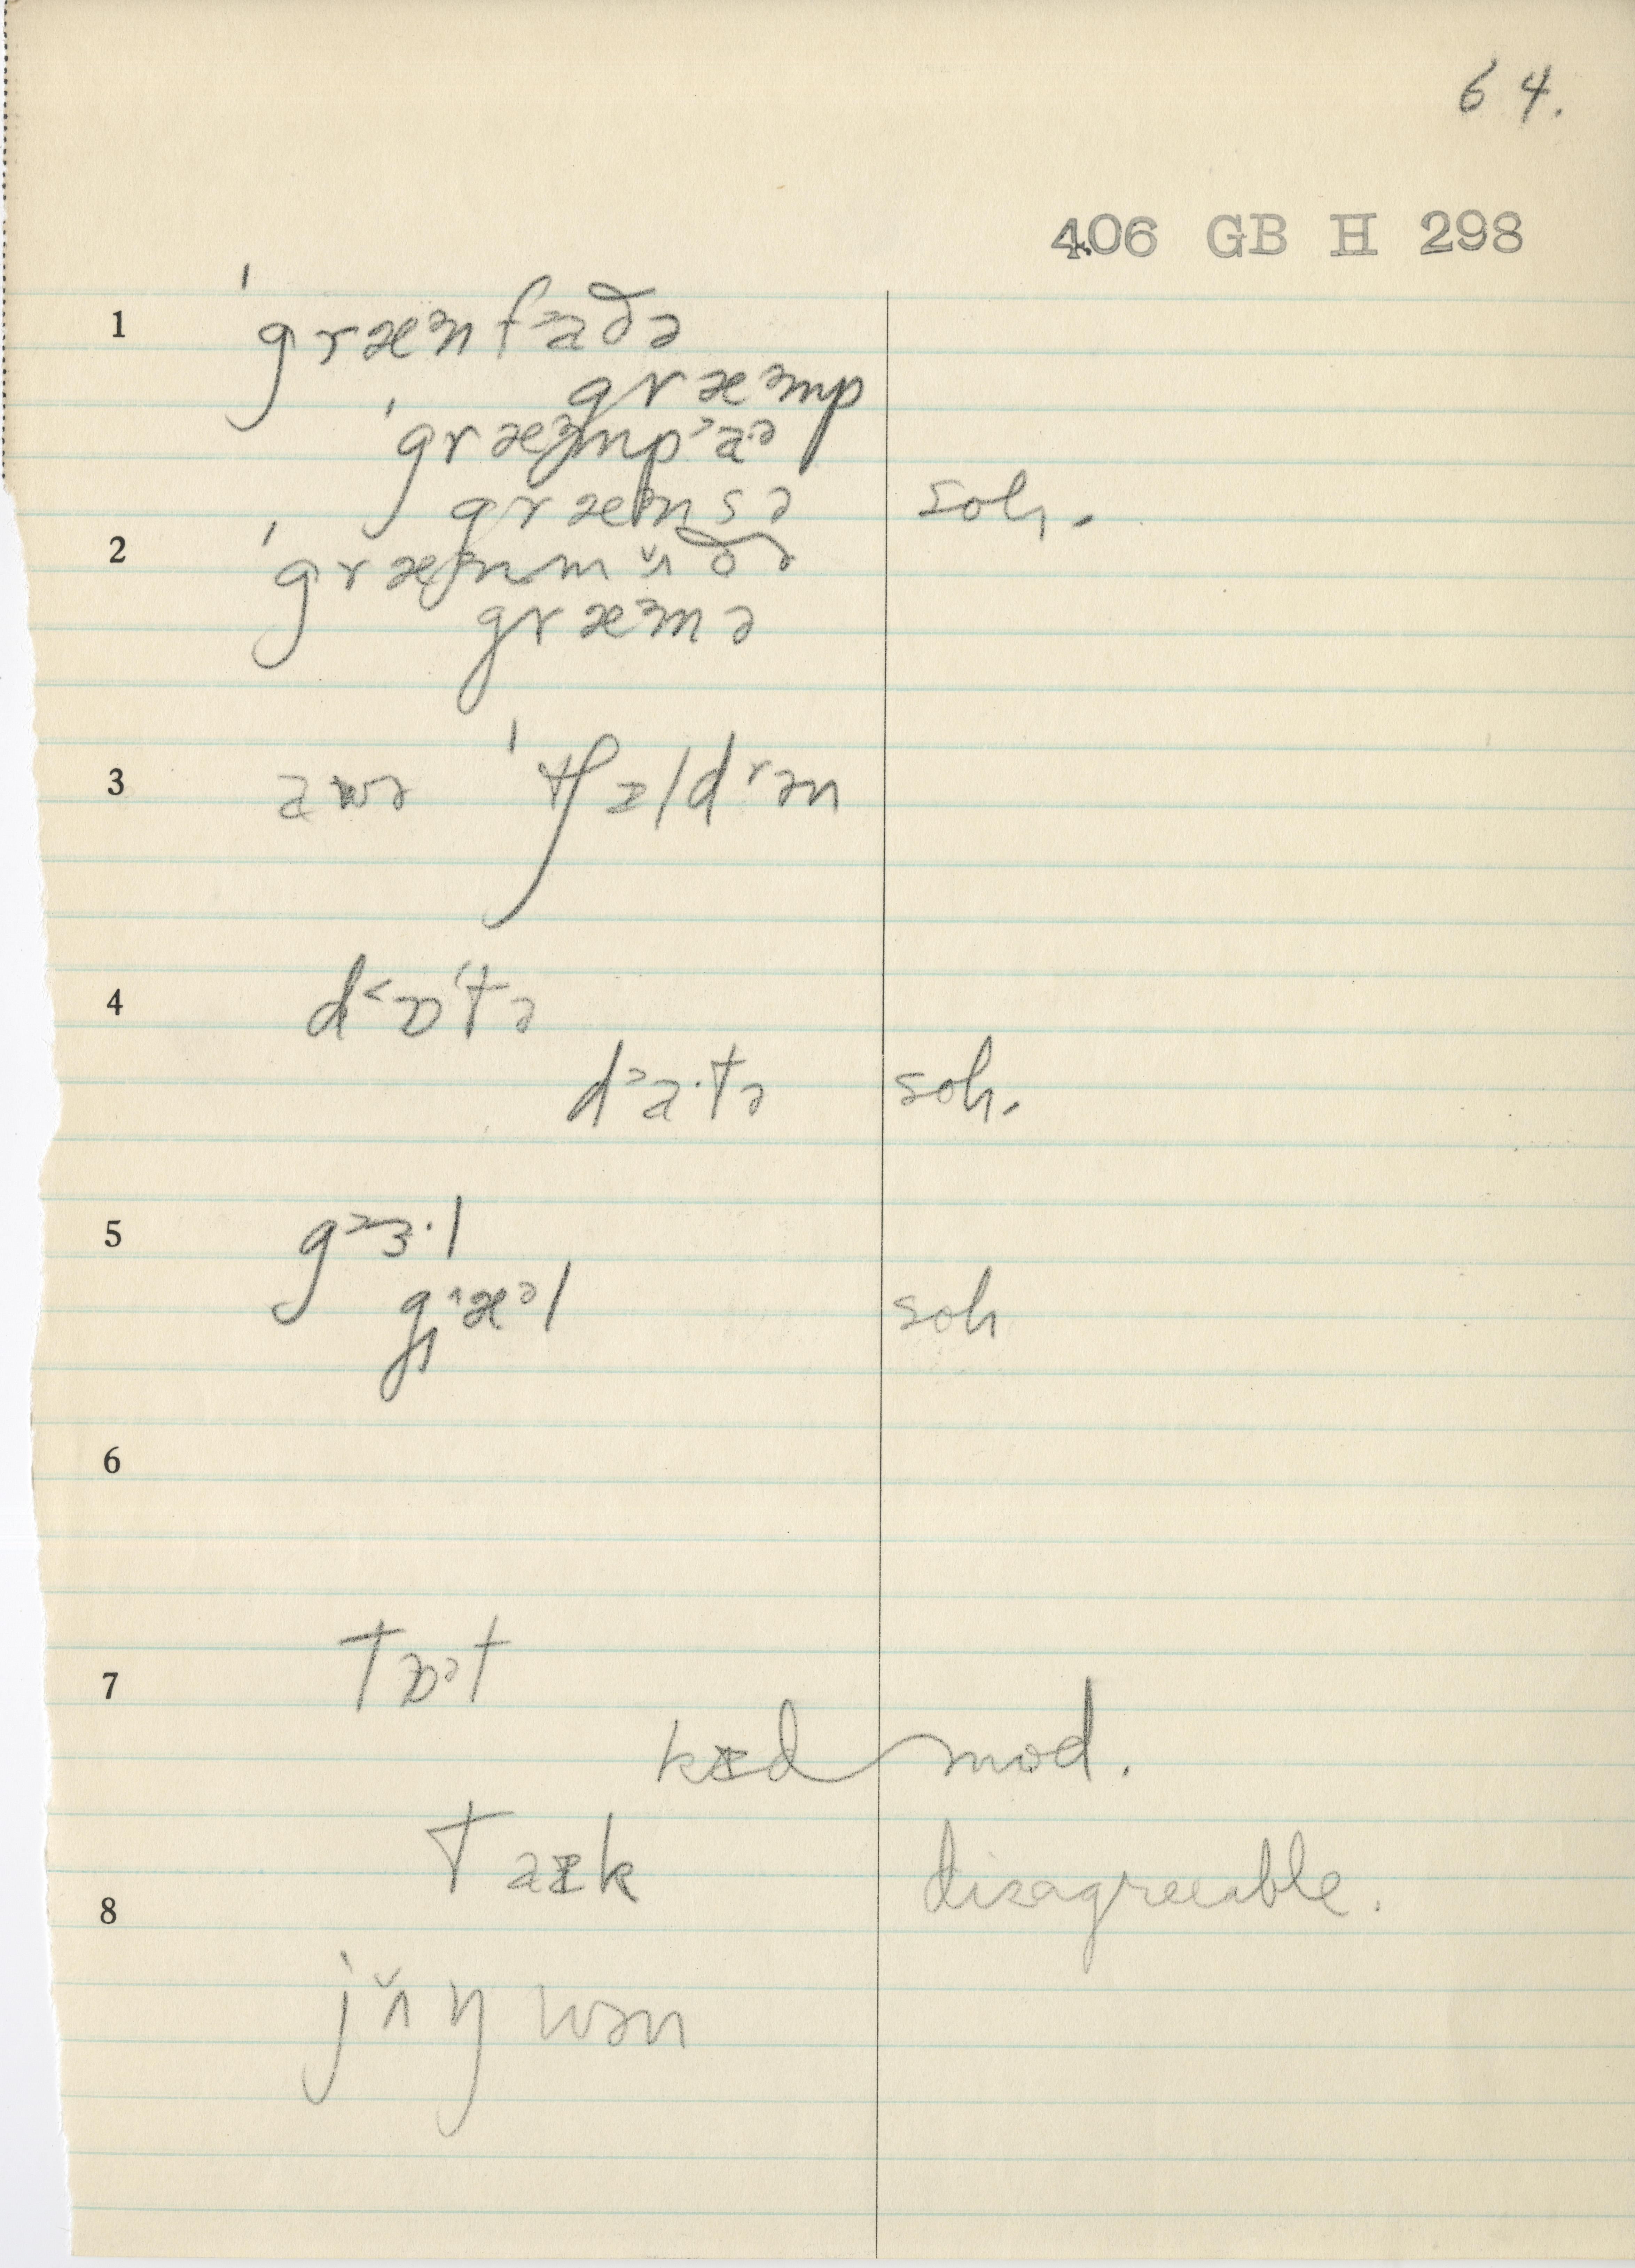 64.
406 GB H 298
1 ˈgræᵌnfᵊaðə
græᵌmp
ˈgræᵌmpᵊaᵊ
græᵌnsə soh.
2 ˈgræᵌnmʌ̌ðə
græᵌmə
3 awə ˈtʃɪldʳən
4 d˂ɒˈtə
dᵊa·tə soh.
5 gᵊɜ·l
gæᵊl soh
6
7 Tɒᵊt
kɪd mod.
Taɪk disagreeable.
8 jʌ̌ŋwən